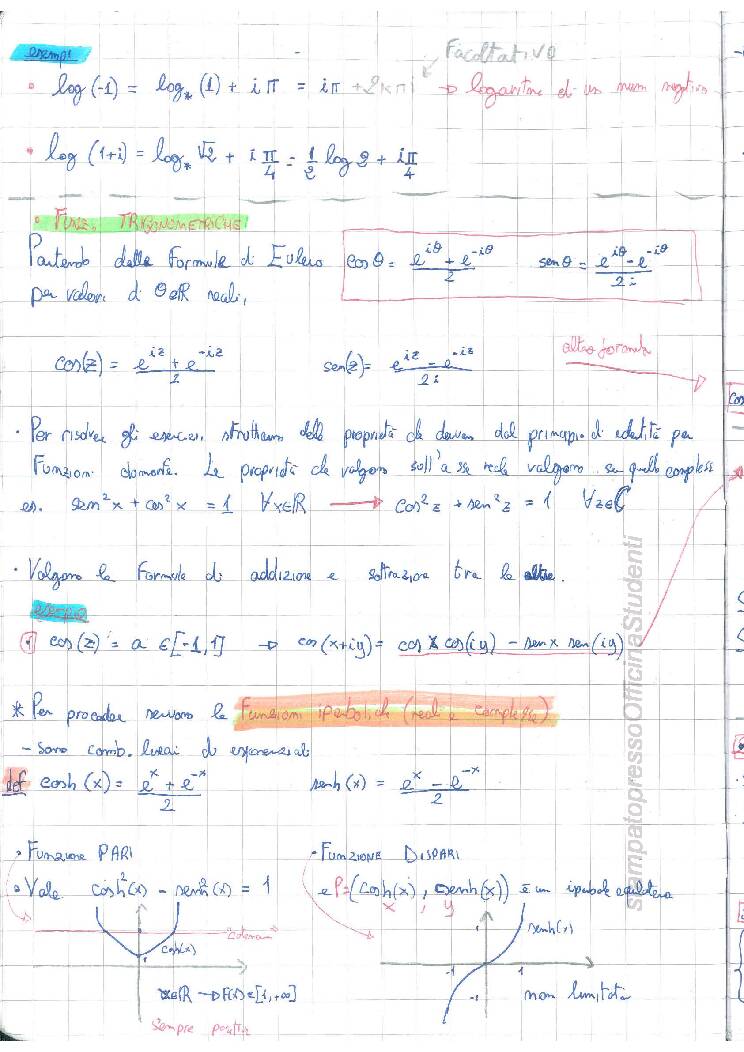 esempi
Facoltativo
• log(-1) = log*(1) + iπ = iπ + 2kπi → logaritmo di un num negativo
• log(1+i) = log* √2 + i π/4 = 1/2 log 2 + iπ/4
• FUNZ. TRIGONOMETRICHE
Partendo dalle Formule di Eulero cosθ = (e^{iθ} + e^{-iθ})/2 senθ = (e^{iθ} - e^{-iθ})/2i
per valori di θ∈ℝ reali,
cos(z) = (e^{iz} + e^{-iz})/2 sen(z) = (e^{iz} - e^{-iz})/2i
altre formula
cos
• Per risolvere gli esercizi sfruttiamo delle proprietà che derivan dal principio di identità per
Funzioni olomorfe. Le proprietà che valgono sull'asse reale valgono su quello complesse
es. sen²x + cos²x = 1 ∀x∈ℝ → cos²z + sen²z = 1 ∀z∈ℂ
• Valgono le Formule di addizione e sottrazione tra le altre.
esempio
1 cos(z) = a ∈ [-1,1] → cos(x+iy) = cos x cos(iy) - sen x sen(iy)
* Per procedere servono le Funzioni iperboliche (reali e complesse)
- Sono comb. lineari di esponenziali
def cosh(x) = (e^x + e^{-x})/2 senh(x) = (e^x - e^{-x})/2
• Funzione PARI • FUNZIONE DISPARI
• Vale cosh²(x) - senh²(x) = 1 e P=(cosh(x), senh(x)) è un iperbole equilatera
x , y
"catenaria"
cosh(x)
1
senh(x)
-1 1
-1
x∈ℝ → F(x)∈[1,+∞] non limitata
Sempre positiva
stampatopressoOfficinaStudenti